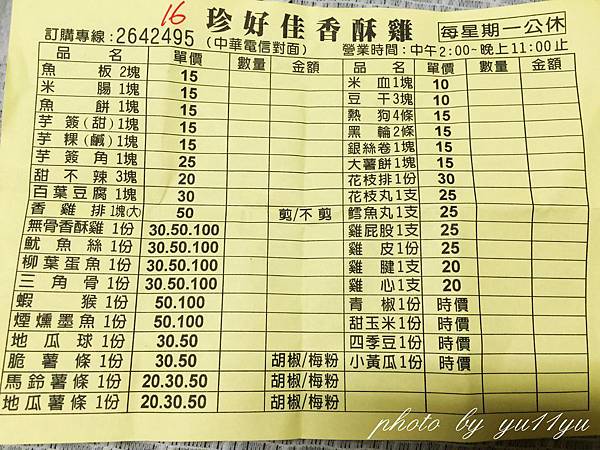 16 珍好佳香酥雞 每星期一公休
訂購專線:2642495 (中華電信對面) 營業時間:中午2:00~晚上11:00止
品名 單價 數量 金額 品名 單價 數量 金額
魚板2塊 15 米血1塊 10
米腸1塊 15 豆干3塊 10
魚餅1塊 15 熱狗4條 15
芋簽(甜)1塊 15 黑輪2條 15
芋粿(鹹)1塊 15 銀絲卷1塊 15
芋簽角1塊 25 大薯餅1塊 15
甜不辣3塊 20 花枝排1份 30
百葉豆腐1塊 30 花枝丸1支 25
香雞排1塊(大) 50 剪/不剪 鱈魚丸1支 25
無骨香酥雞1份 30.50.100 雞屁股1支 25
魷魚絲1份 30.50.100 雞皮1份 25
柳葉蛋魚1份 30.50.100 雞腱1支 20
三角骨1份 30.50.100 雞心1支 20
蝦猴1份 50.100 青椒1份 時價
煙燻墨魚1份 50.100 甜玉米1份 時價
地瓜球1份 30.50 四季豆1份 時價
脆薯條1份 30.50 胡椒/梅粉 小黃瓜1份 時價
馬鈴薯條1份 20.30.50 胡椒/梅粉
地瓜薯條1份 20.30.50 胡椒/梅粉
photo by yu11yu